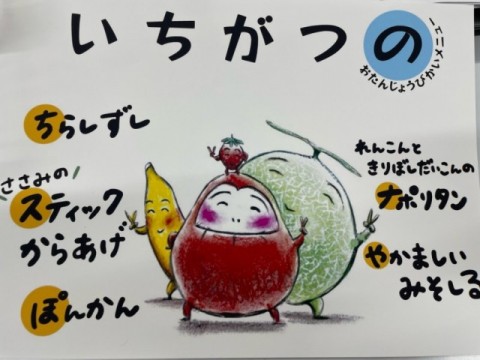 いちがつの
おたんじょうびかいメニュー
ちらしずし
ささみの
スティック
からあげ
ぽんかん
れんこんと
きりぼしだいこんの
ナポリタン
やかましい
みそしる